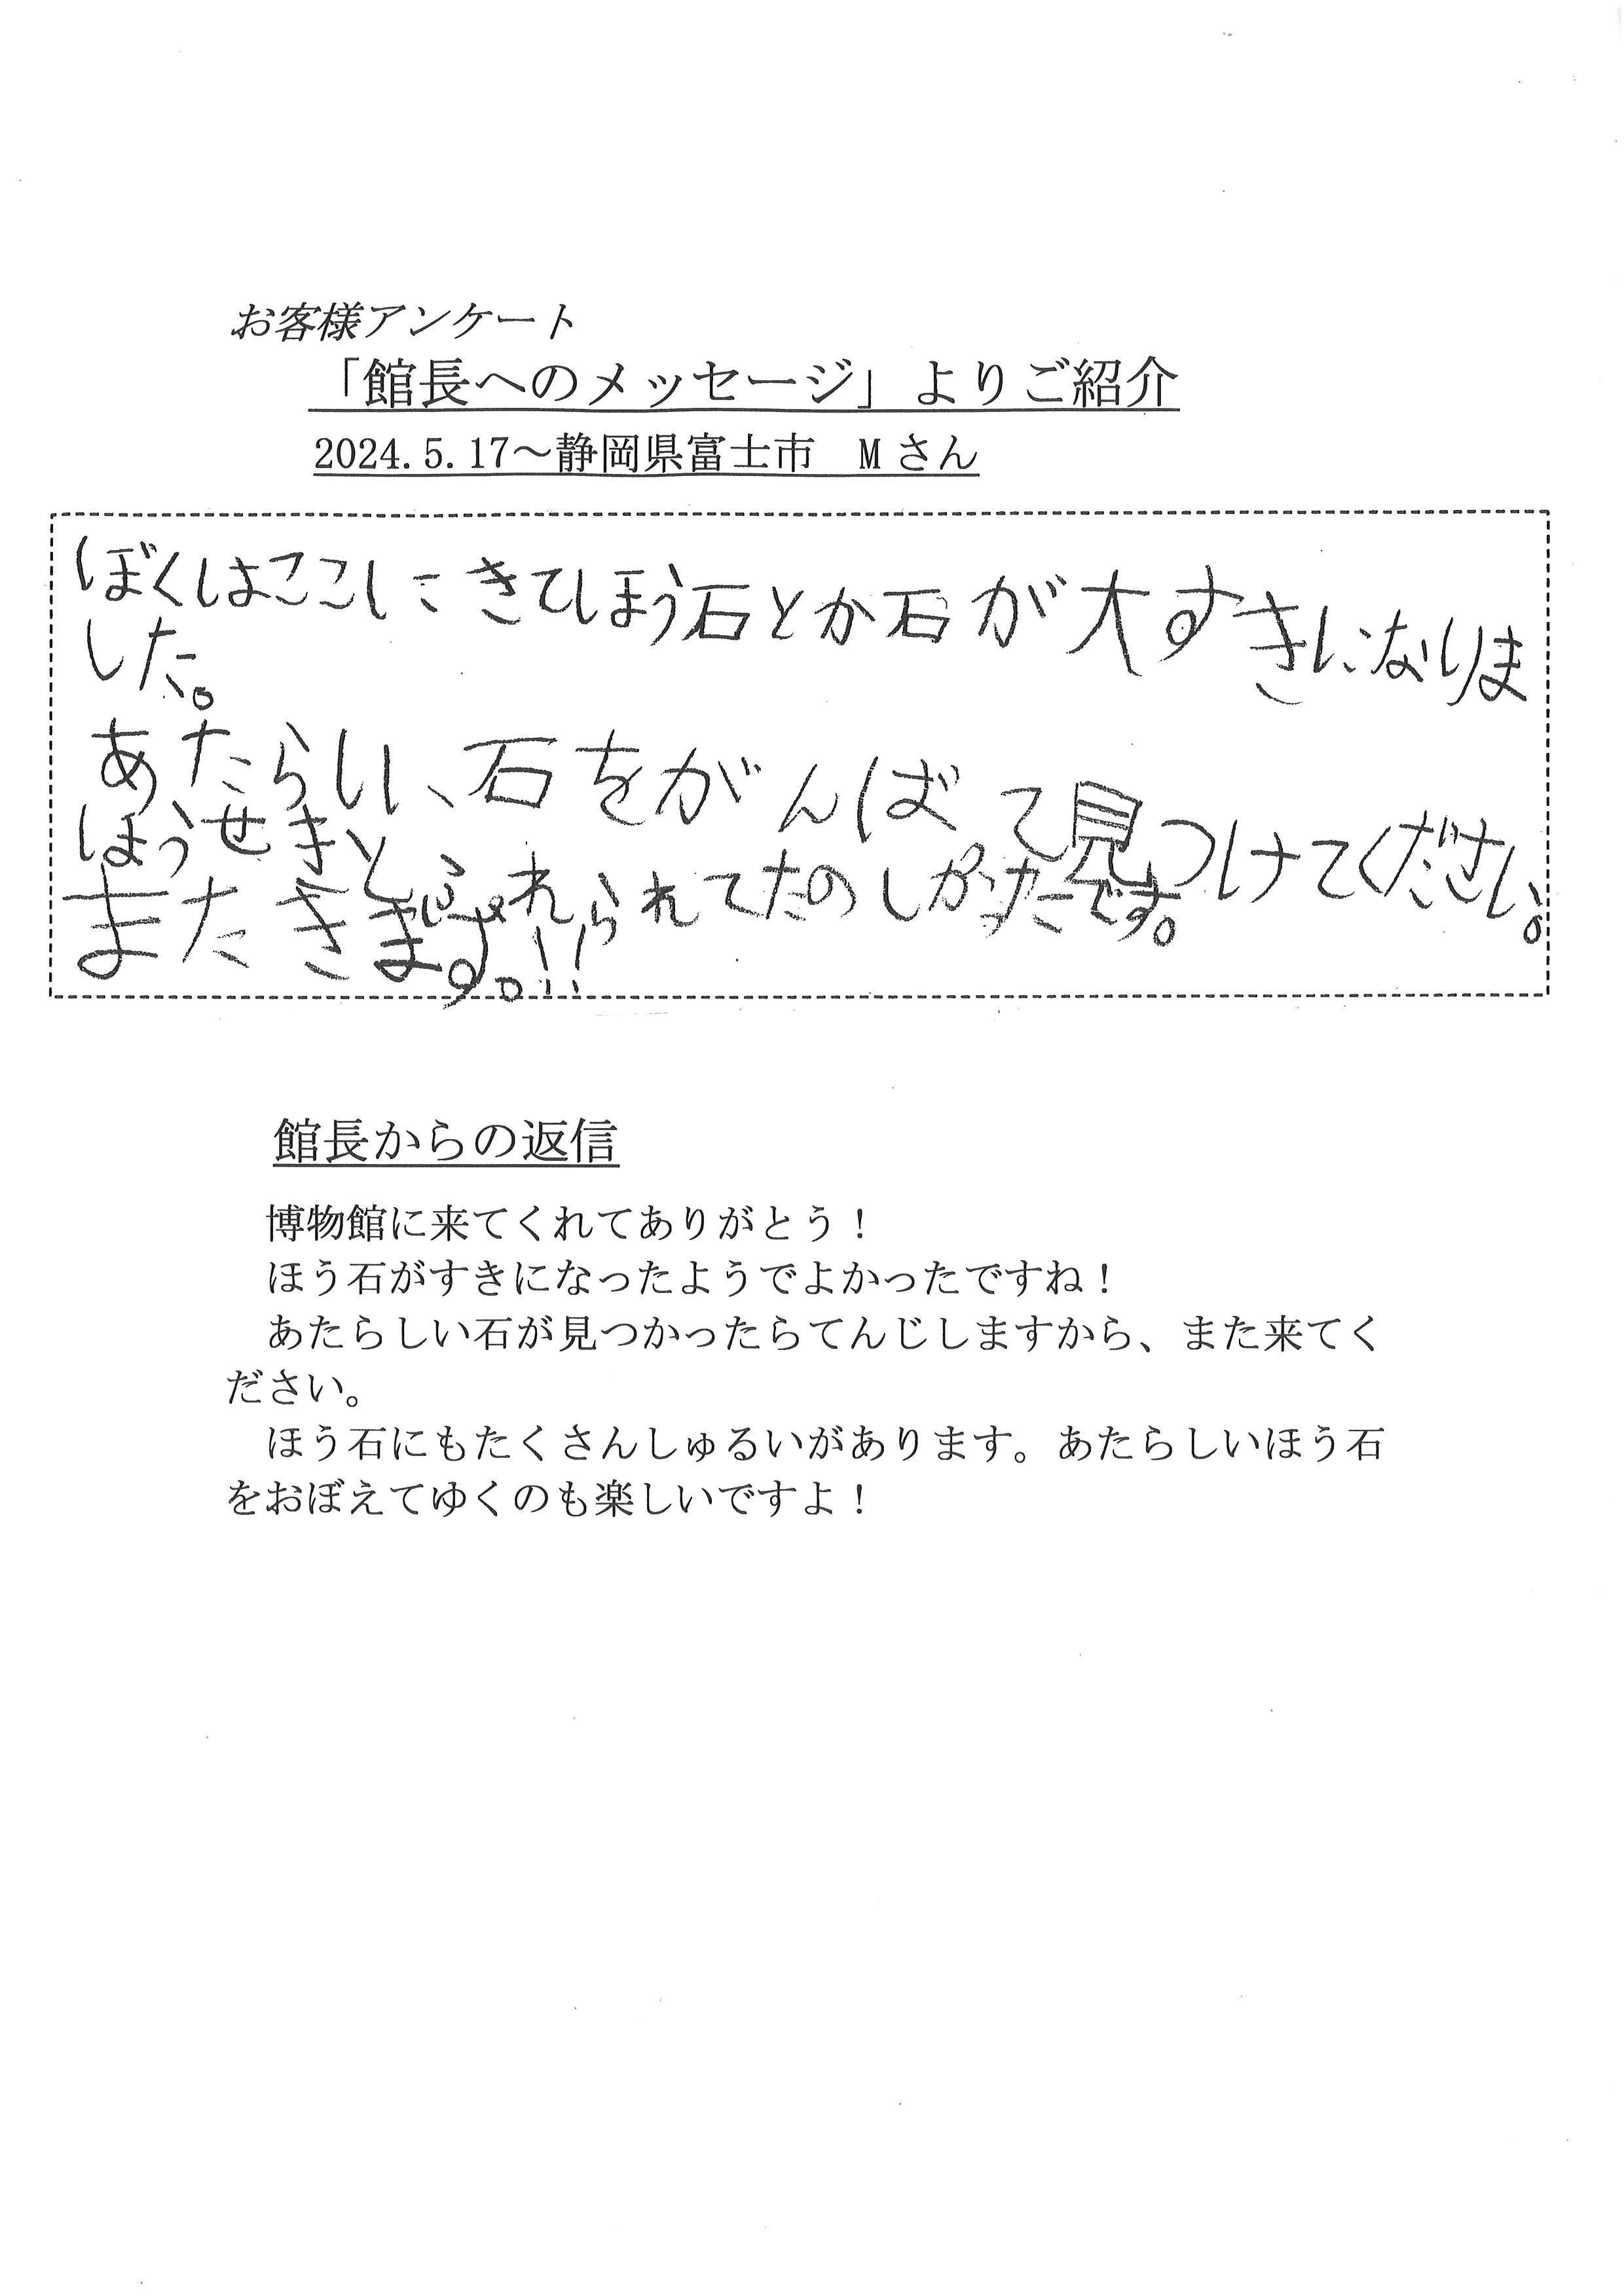 お客様アンケート
「館長へのメッセージ」よりご紹介
2024.5.17～静岡県富士市　Mさん
ぼくはここにきてほう石とか石が大すきになりま
した。
あたらしい石をがんばて見つけてください。
ほうせきとふれられてたのしかったです。
またきます。!!
館長からの返信
博物館に来てくれてありがとう！
ほう石がすきになったようでよかったですね！
あたらしい石が見つかったらてんじしますから、また来てく
ださい。
ほう石にもたくさんしゅるいがあります。あたらしいほう石
をおぼえてゆくのも楽しいですよ！